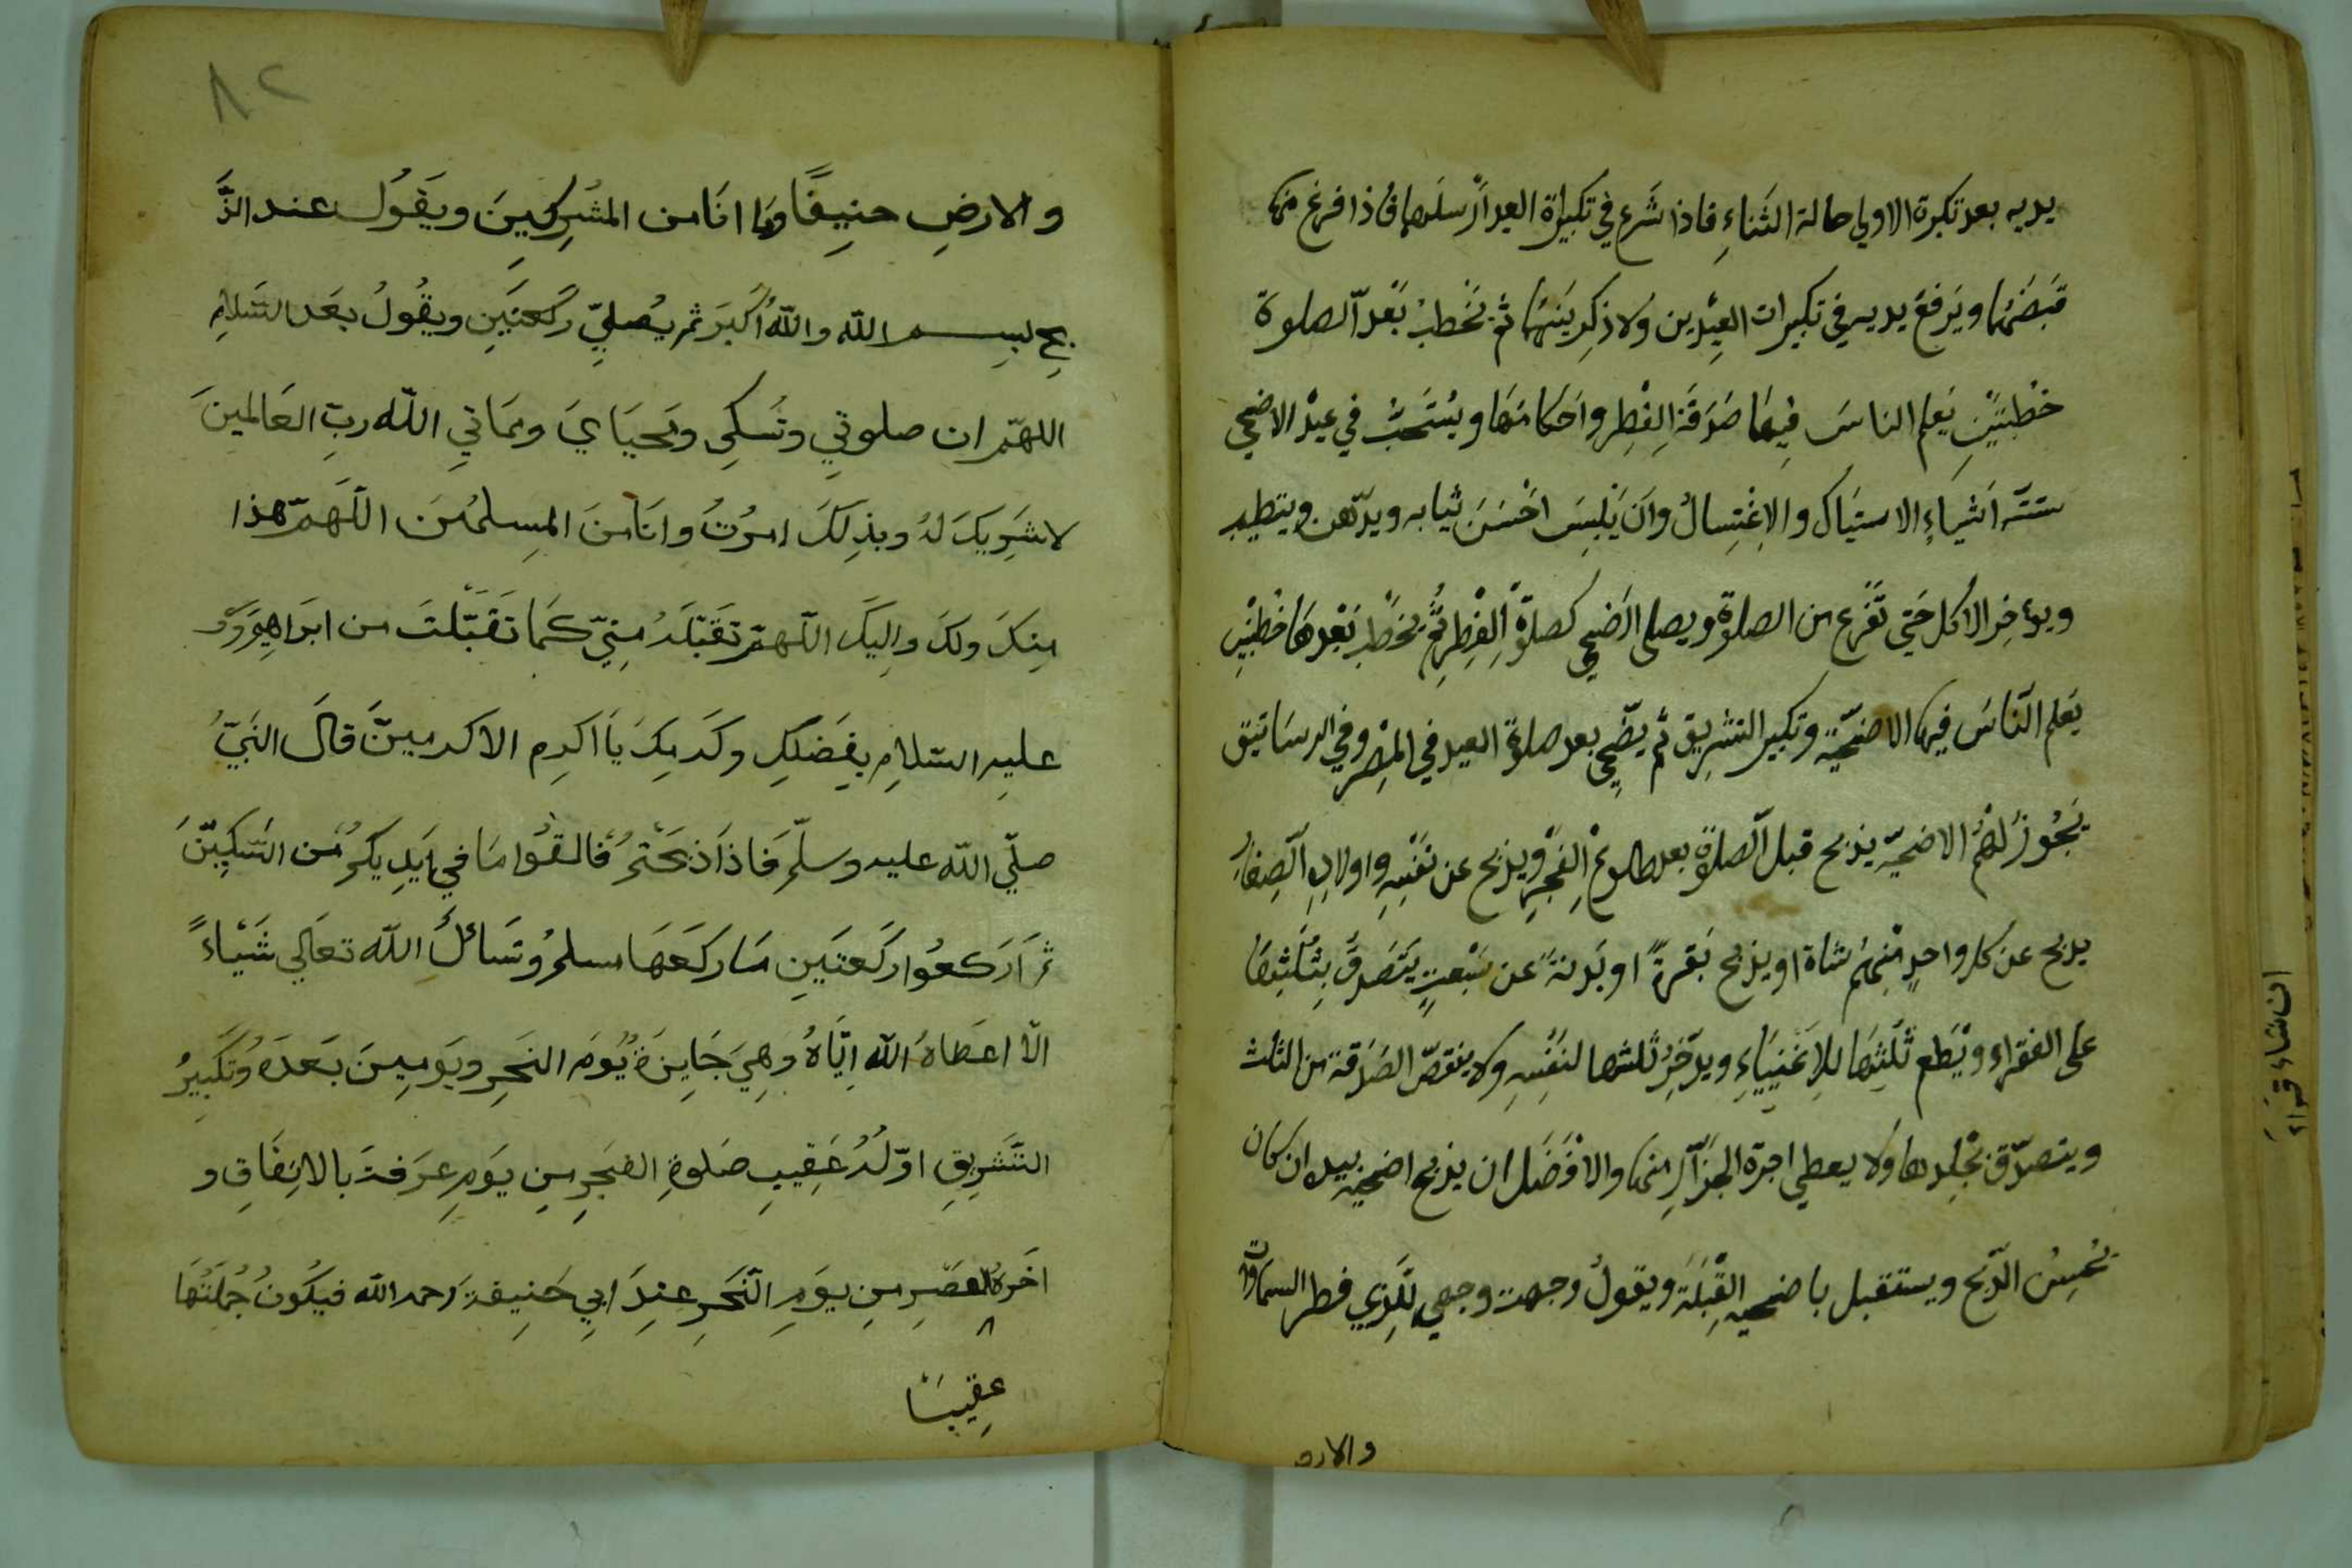 يديه بعد تكبرة الاولي حالة الثَناءِ فاذا شَرع في تكبيراة العيد ارْسلهما فاذا فرغ منها
قبَضهُما ويَرفعُ يديه في تكبيرات العِيْدين ولا ذِكر بَينهَما ثم يَخطبُ بَعْد الصلوة
خْطبتَيْنِ يَعلم الناسَ فِيهَا صَدَقَة الِفْطِر واَحكامَها ويُسْتَحَبّ في عيْد الاضحي
ستّة اَشياءِ الاستيَاك والاِغْتِسالُ واَن يَلْبسَ احْسَنَ ثيابه ويدّهن ويتطيب
ويؤخِر الاكل حَتي تَفْرغ من الصلوة ويصلي الضحي كصلوة الِفْطِر ثُمَّ يخطبُ بَعْدهَا خْطبتَيْنِ
يَعلم الناسَ فيها الاضحيّة وتكبير التشرِيق ثم يضّحِي بعد صلوة العيد في المْصِر وفي الرسَاتيق
يَجُوزُ لهُمُ الاضحيّة يذبح قبل الصلوةِ بعد طلوعْ الِفَجْرِ ويذبح عن نفْسِهِ واولادِهِ الصِغارِ
يذبح عن كل واحدٍ مْنِهُم شاة او يذبح بَقرةً او بَدنةً عن سَبْعتٍ يَتَصَدقَّ بِثُلثِهَا
علي الفقراء ويُطعم ثُلثِهَا للاِغَنيَاءِ ويدّخِرُ ثلثها لنَفْسِهِ ولا ينقصّ الصَدَقة من الثلث
ويتصدّق بْجلِدها ولا يعطي اجرة الجزّارِ منها والافْضَل ان يذبح اضحيته بيده ان كان
يُحْسِنُ الذّبح ويستقبل باضحيته القِبْلَة ويقولُ وجهت وجهي للّذِي فطر السماوات
والارض
والارضِ حنِيفًا وما انَا من المشْرِكيِنَ ويَقوُل عند الذَّ
بحِ لبِسم الله والله اكَبَر ثم يُصليّ ركَعتَيِن ويقُولُ بعَد السَلامِ
اللهمّ ان صلوتيِ ونُسكِي ومَحيَايَ ومَماتيِ الله ربّ العَالمينَ
لا شَرِيكَ لهُ وبذِلكَ امرُتُ وانَا منَ المِسلميُنَ اللّهَمّ هذا
مِنكَ ولكَ واِليَكَ اللّهمّ تَقَبّلَهُ مِنيّ كَمَا تَقَبّلتَ من ابرَاهِيمَ
عليِه السّلامِ بِفَضلكِ وكَرمِكَ يَا اكرِم الاكرميَنّ قالَ النَبيّ
صلّي الله عليه وسلّم فَاذا ذَبَحَتمُ فَالقوُا مَا في ايَدِيكم مُن السّكيِنَّ
ثم اَركعوُا ركَعتَيِن مَا ركَعَهَا مسلمُ وسَائلَ الله تعَالي شَيْاءً
الاّ اعطَاهُ الله اِيّاهُ وَهِيَ جَايِزَة يُومَ النحَرِ ويَوَمِينَ بَعدَهُ وتَكبِيرُ
التَشَرِيقِ اوّلهُ عَقِيبِ صَلوةِ الفجَرِ مِنِ يَومِ عرَفةَ بالاتِفَاقِ و
اخَرهُ العصَرِ مِنِ يوَمِ النّحَرِ عنِدَ ابيِ حَنِيفةَ رحمه الله فيَكُونُ جُملَتُهَا
عقِيبَ
٨٢
ان شاء